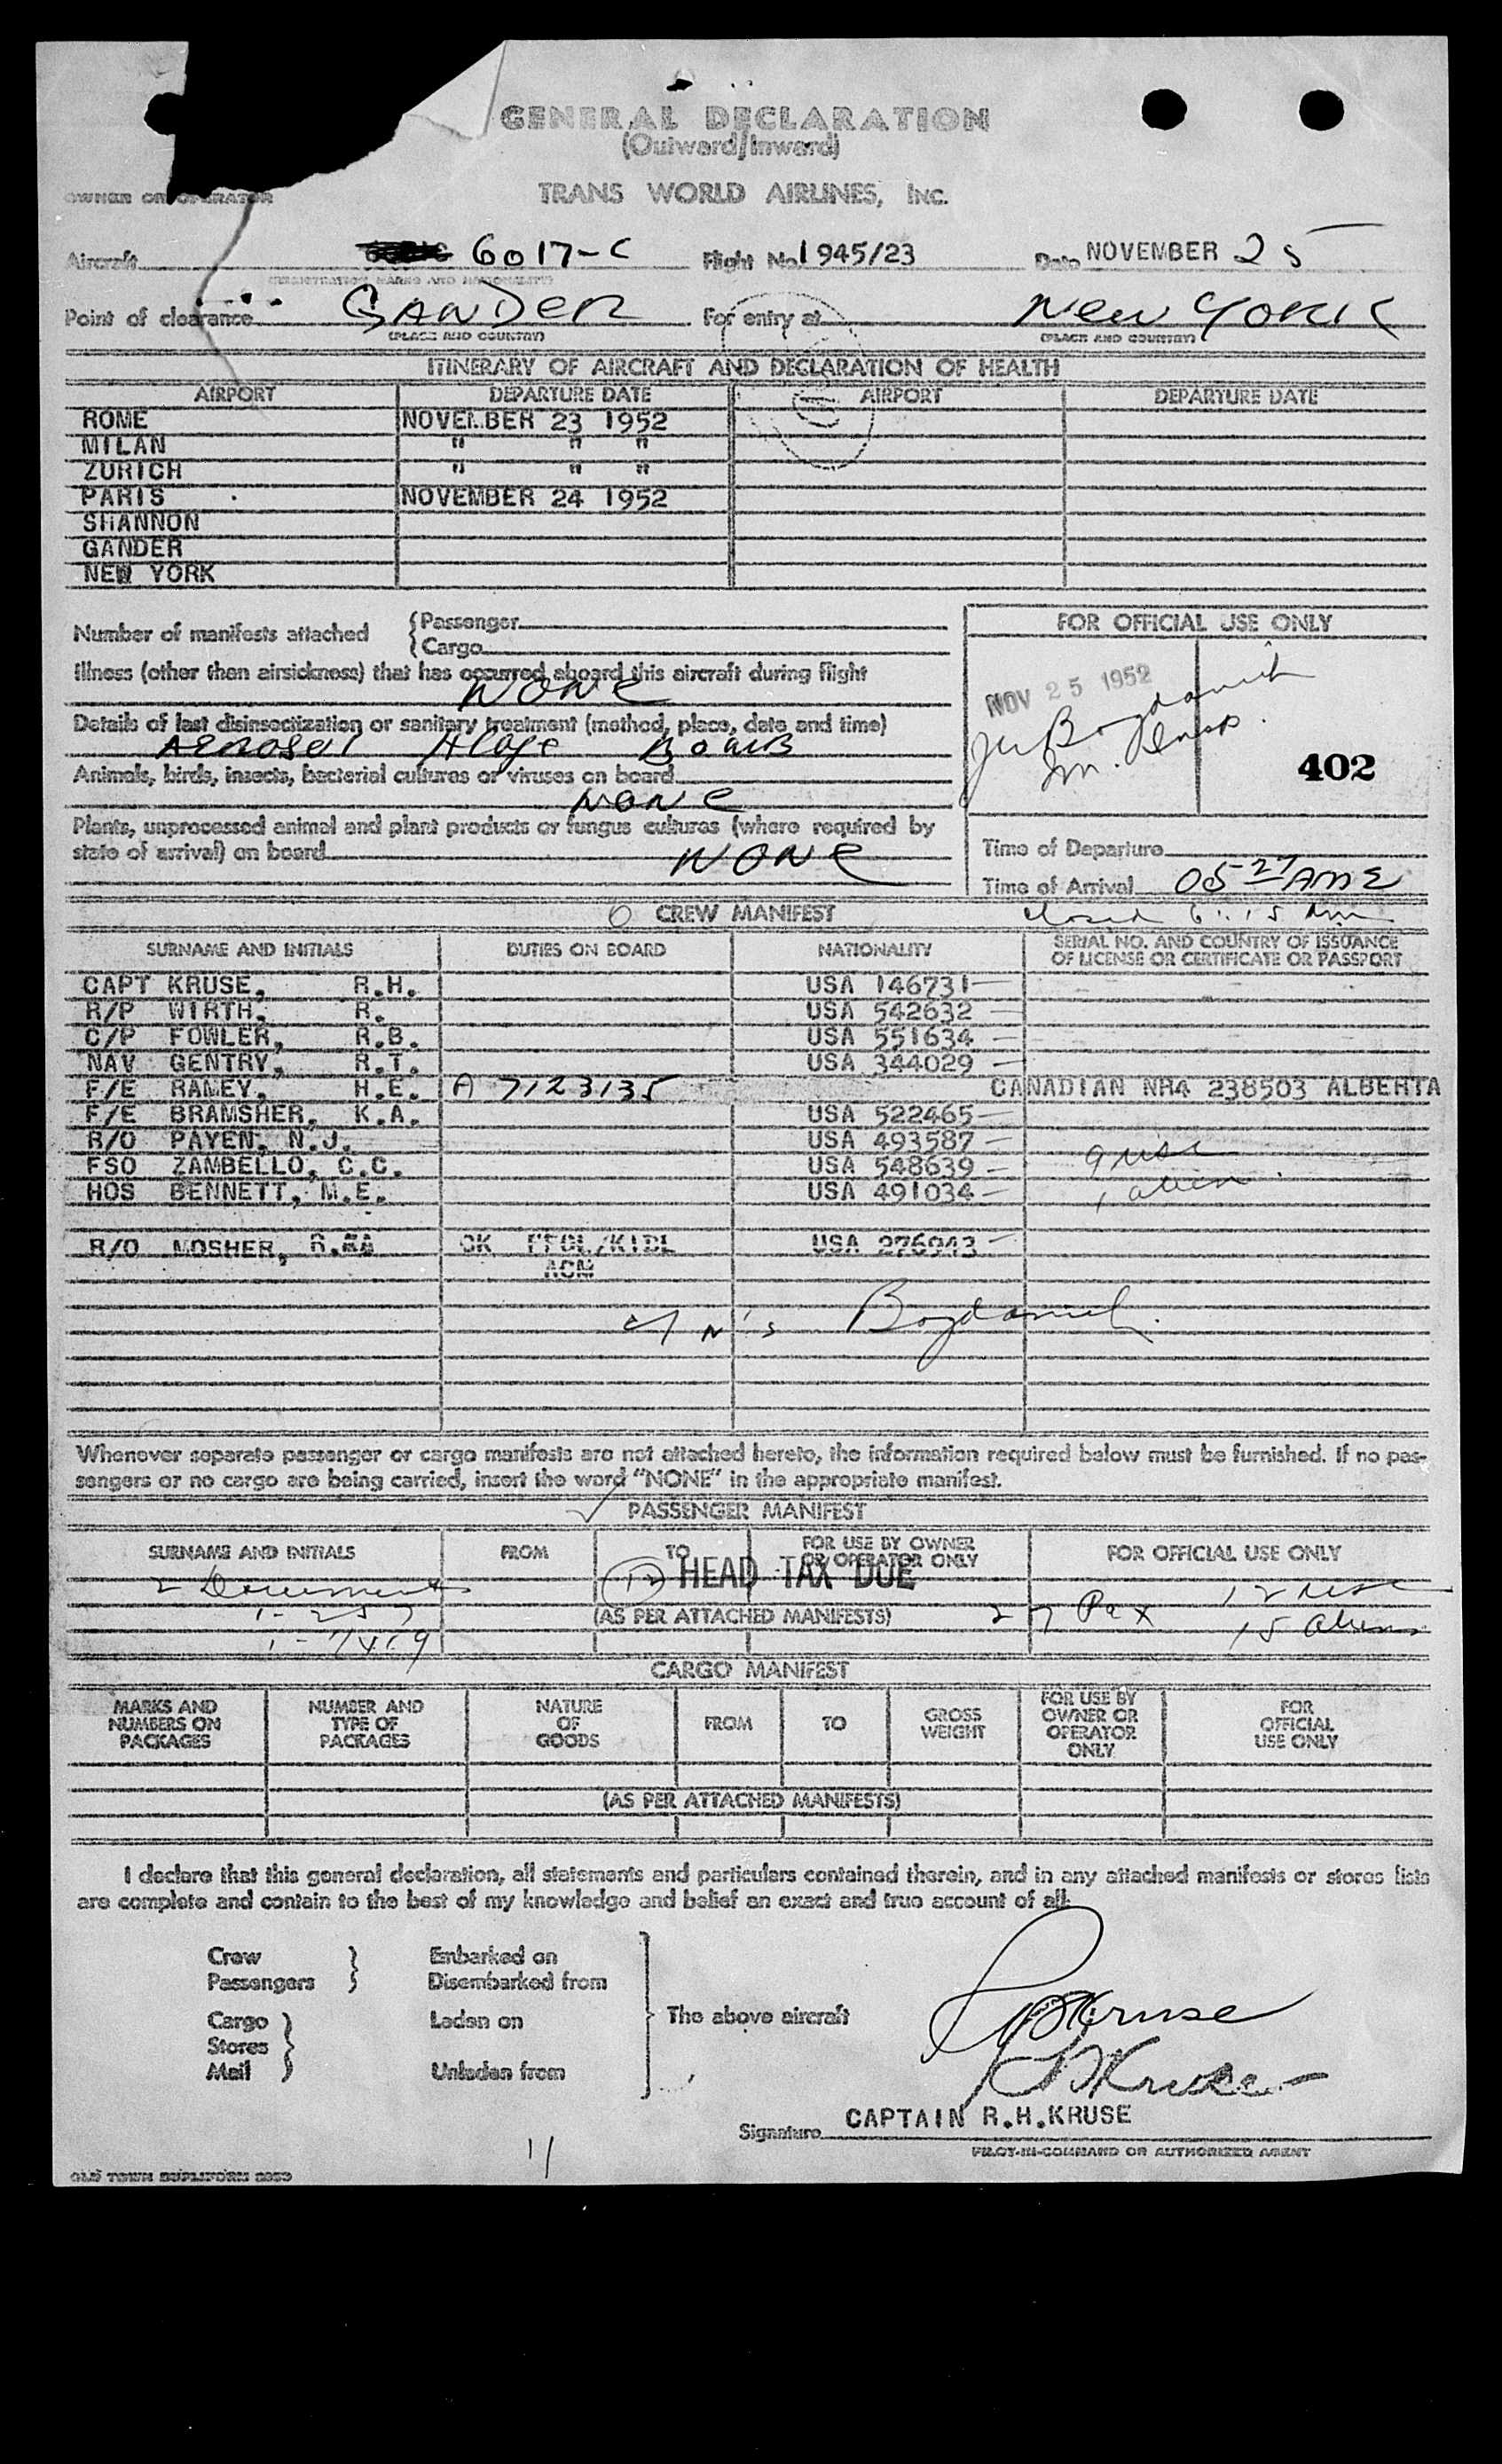 GENERAL DECLARATION
(Outward/Inward)
OWNER OR OPERATOR TRANS WORLD AIRLINES, INC.
Aircraft 6017-C Flight No. 1945/23 Date NOVEMBER 25
(REGISTRATION MARKS AND NATIONALITY)
Point of clearance GANDER For entry at NEW YORK
(PLACE AND COUNTRY) (PLACE AND COUNTRY)
ITINERARY OF AIRCRAFT AND DECLARATION OF HEALTH
AIRPORT DEPARTURE DATE AIRPORT DEPARTURE DATE
ROME NOVEMBER 23 1952
MILAN " " "
ZURICH " " "
PARIS NOVEMBER 24 1952
SHANNON
GANDER
NEW YORK
Number of manifests attached {Passenger
{Cargo
Illness (other than airsickness) that has occurred aboard this aircraft during flight
NONE
Details of last disinsectization or sanitary treatment (method, place, date and time)
AEROSOL BOMB
Animals, birds, insects, bacterial cultures or viruses on board
NONE
Plants, unprocessed animal and plant products or fungus cultures (where required by
state of arrival) on board NONE
FOR OFFICIAL USE ONLY
NOV 25 1952
Bogdanich
Im. Insp.
402
Time of Departure
Time of Arrival 0527 AM E
closed 6:15 AM
CREW MANIFEST
SURNAME AND INITIALS DUTIES ON BOARD NATIONALITY SERIAL NO. AND COUNTRY OF ISSUANCE
OF LICENSE OR CERTIFICATE OR PASSPORT
CAPT KRUSE, R.H. USA 146731
R/P WIRTH, R. USA 542632
C/P FOWLER, R.B. USA 551634
NAV GENTRY, R.T. USA 344029
F/E RAMEY, H.E. A 7123135 CANADIAN NR4 238503 ALBERTA
F/E BRAMSHER, K.A. USA 522465
R/O PAYEN, N.J. USA 493587
FSO ZAMBELLO, C.C. USA 548639
HOS BENNETT, M.E. USA 491034
9 usc
1 alien
R/O MOSHER, R. USA 276943
OK
ACM
Bogdanich
Whenever separate passenger or cargo manifests are not attached hereto, the information required below must be furnished. If no pas-
sengers or no cargo are being carried, insert the word "NONE" in the appropriate manifest.
PASSENGER MANIFEST
SURNAME AND INITIALS FROM TO FOR USE BY OWNER
OR OPERATOR ONLY FOR OFFICIAL USE ONLY
2 Documents (12) HEAD TAX DUE 12 usc
1-257 (AS PER ATTACHED MANIFESTS) 27 Pax 15 aliens
CARGO MANIFEST
MARKS AND
NUMBERS ON
PACKAGES
NUMBER AND
TYPE OF
PACKAGES
NATURE
OF
GOODS
FROM
TO
GROSS
WEIGHT
FOR USE BY
OWNER OR
OPERATOR
ONLY
FOR
OFFICIAL
USE ONLY
(AS PER ATTACHED MANIFESTS)
I declare that this general declaration, all statements and particulars contained therein, and in any attached manifests or stores lists
are complete and contain to the best of my knowledge and belief an exact and true account of all.
Crew } Embarked on
Passengers } Disembarked from
Cargo } Laden on The above aircraft
Stores
Mail } Unladen from
RH Kruse
RH Kruse
Signature CAPTAIN R.H.KRUSE
PILOT-IN-COMMAND OR AUTHORIZED AGENT
11
OLD TOWN DUPLIFORM